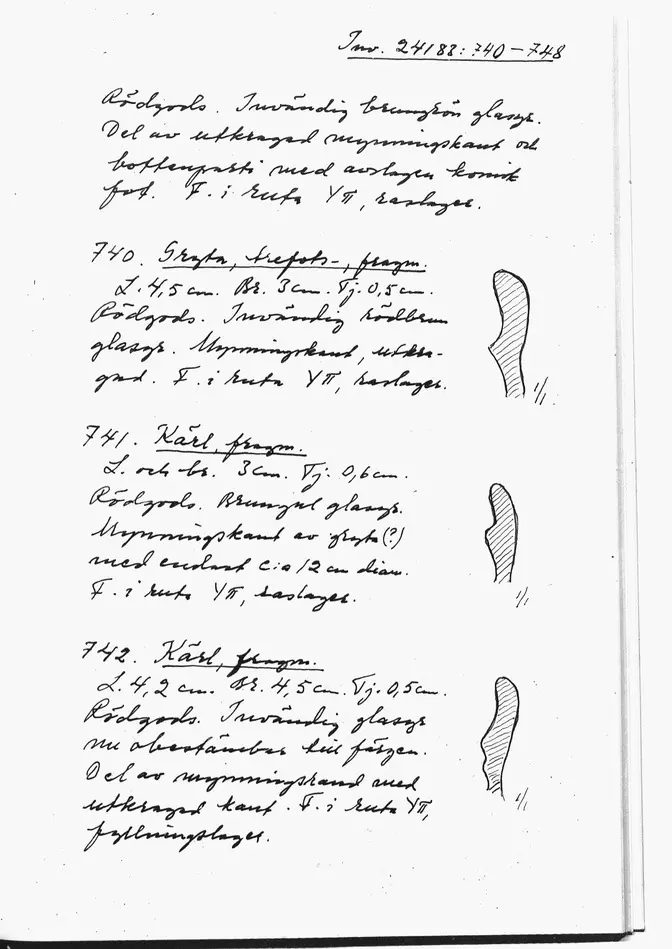 Inv. 24183:740-748
Rödgods. Invändig brungrön glasyr.
Del av utkragad mynningskant och
bottenparti med avslagen konisk
fot. F. i ruta YΠ, raslager.
740. Gryta, trefots-, fragm.
L. 4,5 cm. Br. 3 cm. Tj. 0,5 cm.
Rödgods. Invändig rödbrun
glasyr. Mynningskant, utkra-
gad. F. i ruta YΠ, raslager.
1/1.
741. Kärl, fragm.
L. och br. 3 cm. Tj. 0,6 cm.
Rödgods. Brungul glasyr.
Mynningskant av gryta(?)
med endast c:a 12 cm diam.
F. i ruta YΠ, raslager.
1/1
742. Kärl, fragm.
L. 4,2 cm. Br. 4,5 cm. Tj. 0,5 cm.
Rödgods. Invändig glasyr
nu obestämbar till färgen.
Del av mynningsrand med
utkragad kant. F. i ruta YΠ,
fyllningslager.
1/1